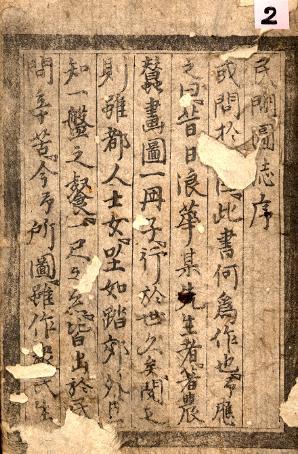 2
民間圖志序
或問於曰此書何爲作也予應
之曰昔日浪華某先生者著農
蠶畫圖一冊子行於世久矣閱之
則雖都人士女坐如踏郊外且
知一盤之餐一尺之皆出於民
間辛苦今予所圖雖作民生